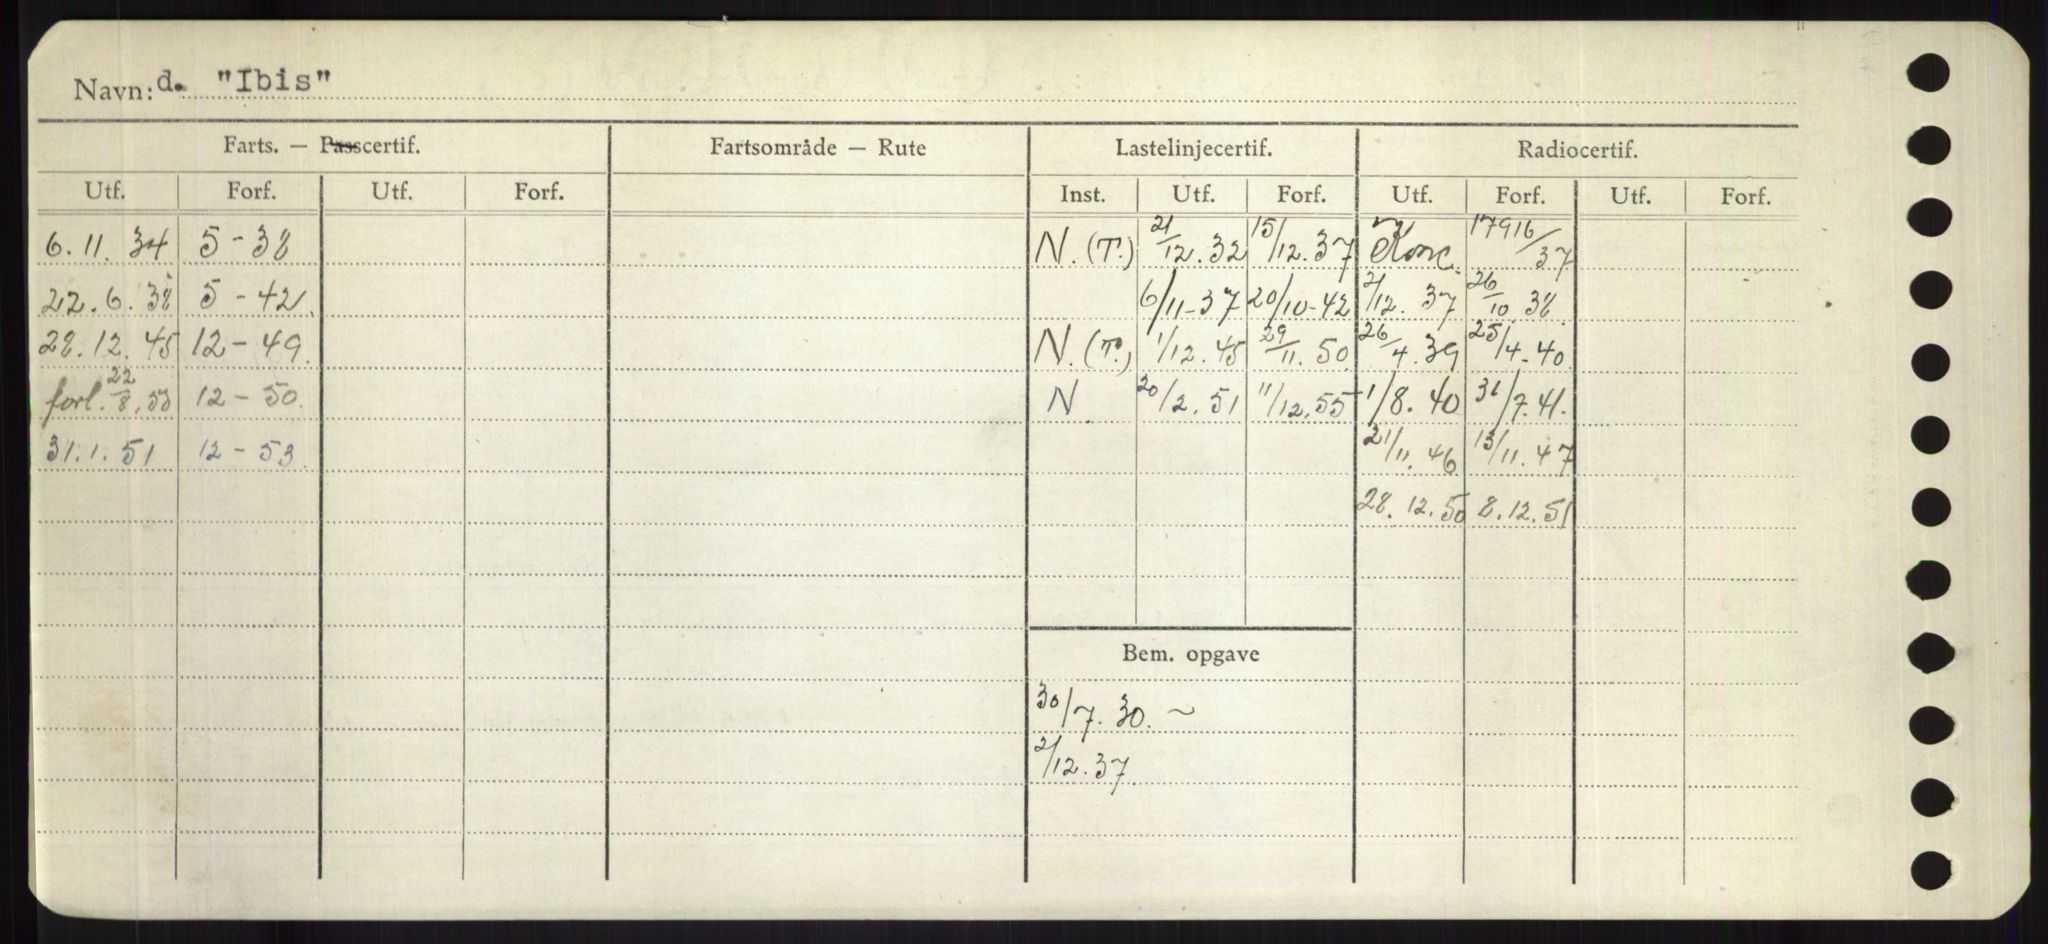 Navn: d. "Ibis"
Farts. — Passcertif. Fartsområde — Rute Lastelinjecertif. Radiocertif.
Utf. Forf. Utf. Forf. Inst. Utf. Forf. Utf. Forf. Utf. Forf.
6. 11. 34 5 - 38 N. (T.) 21/12. 32 15/12. 37 Konc. 17916/37
22. 6. 38 5 - 42. 6/11-37 20/10-42 2/12. 37 26/10. 38.
28. 12. 45 12 - 49. N. (T.) 1/12. 45 29/11. 50. 26/4. 39 25/4-40
forl. 22/8. 50 12 - 50. N 20/2. 51 11/12. 55 1/8. 40 31/7. 41.
31. 1. 51 12 - 53 21/11. 46 13/11. 47
28. 12. 50 8. 12. 51
Bem. opgave
30/7. 30. ~
2/12. 37